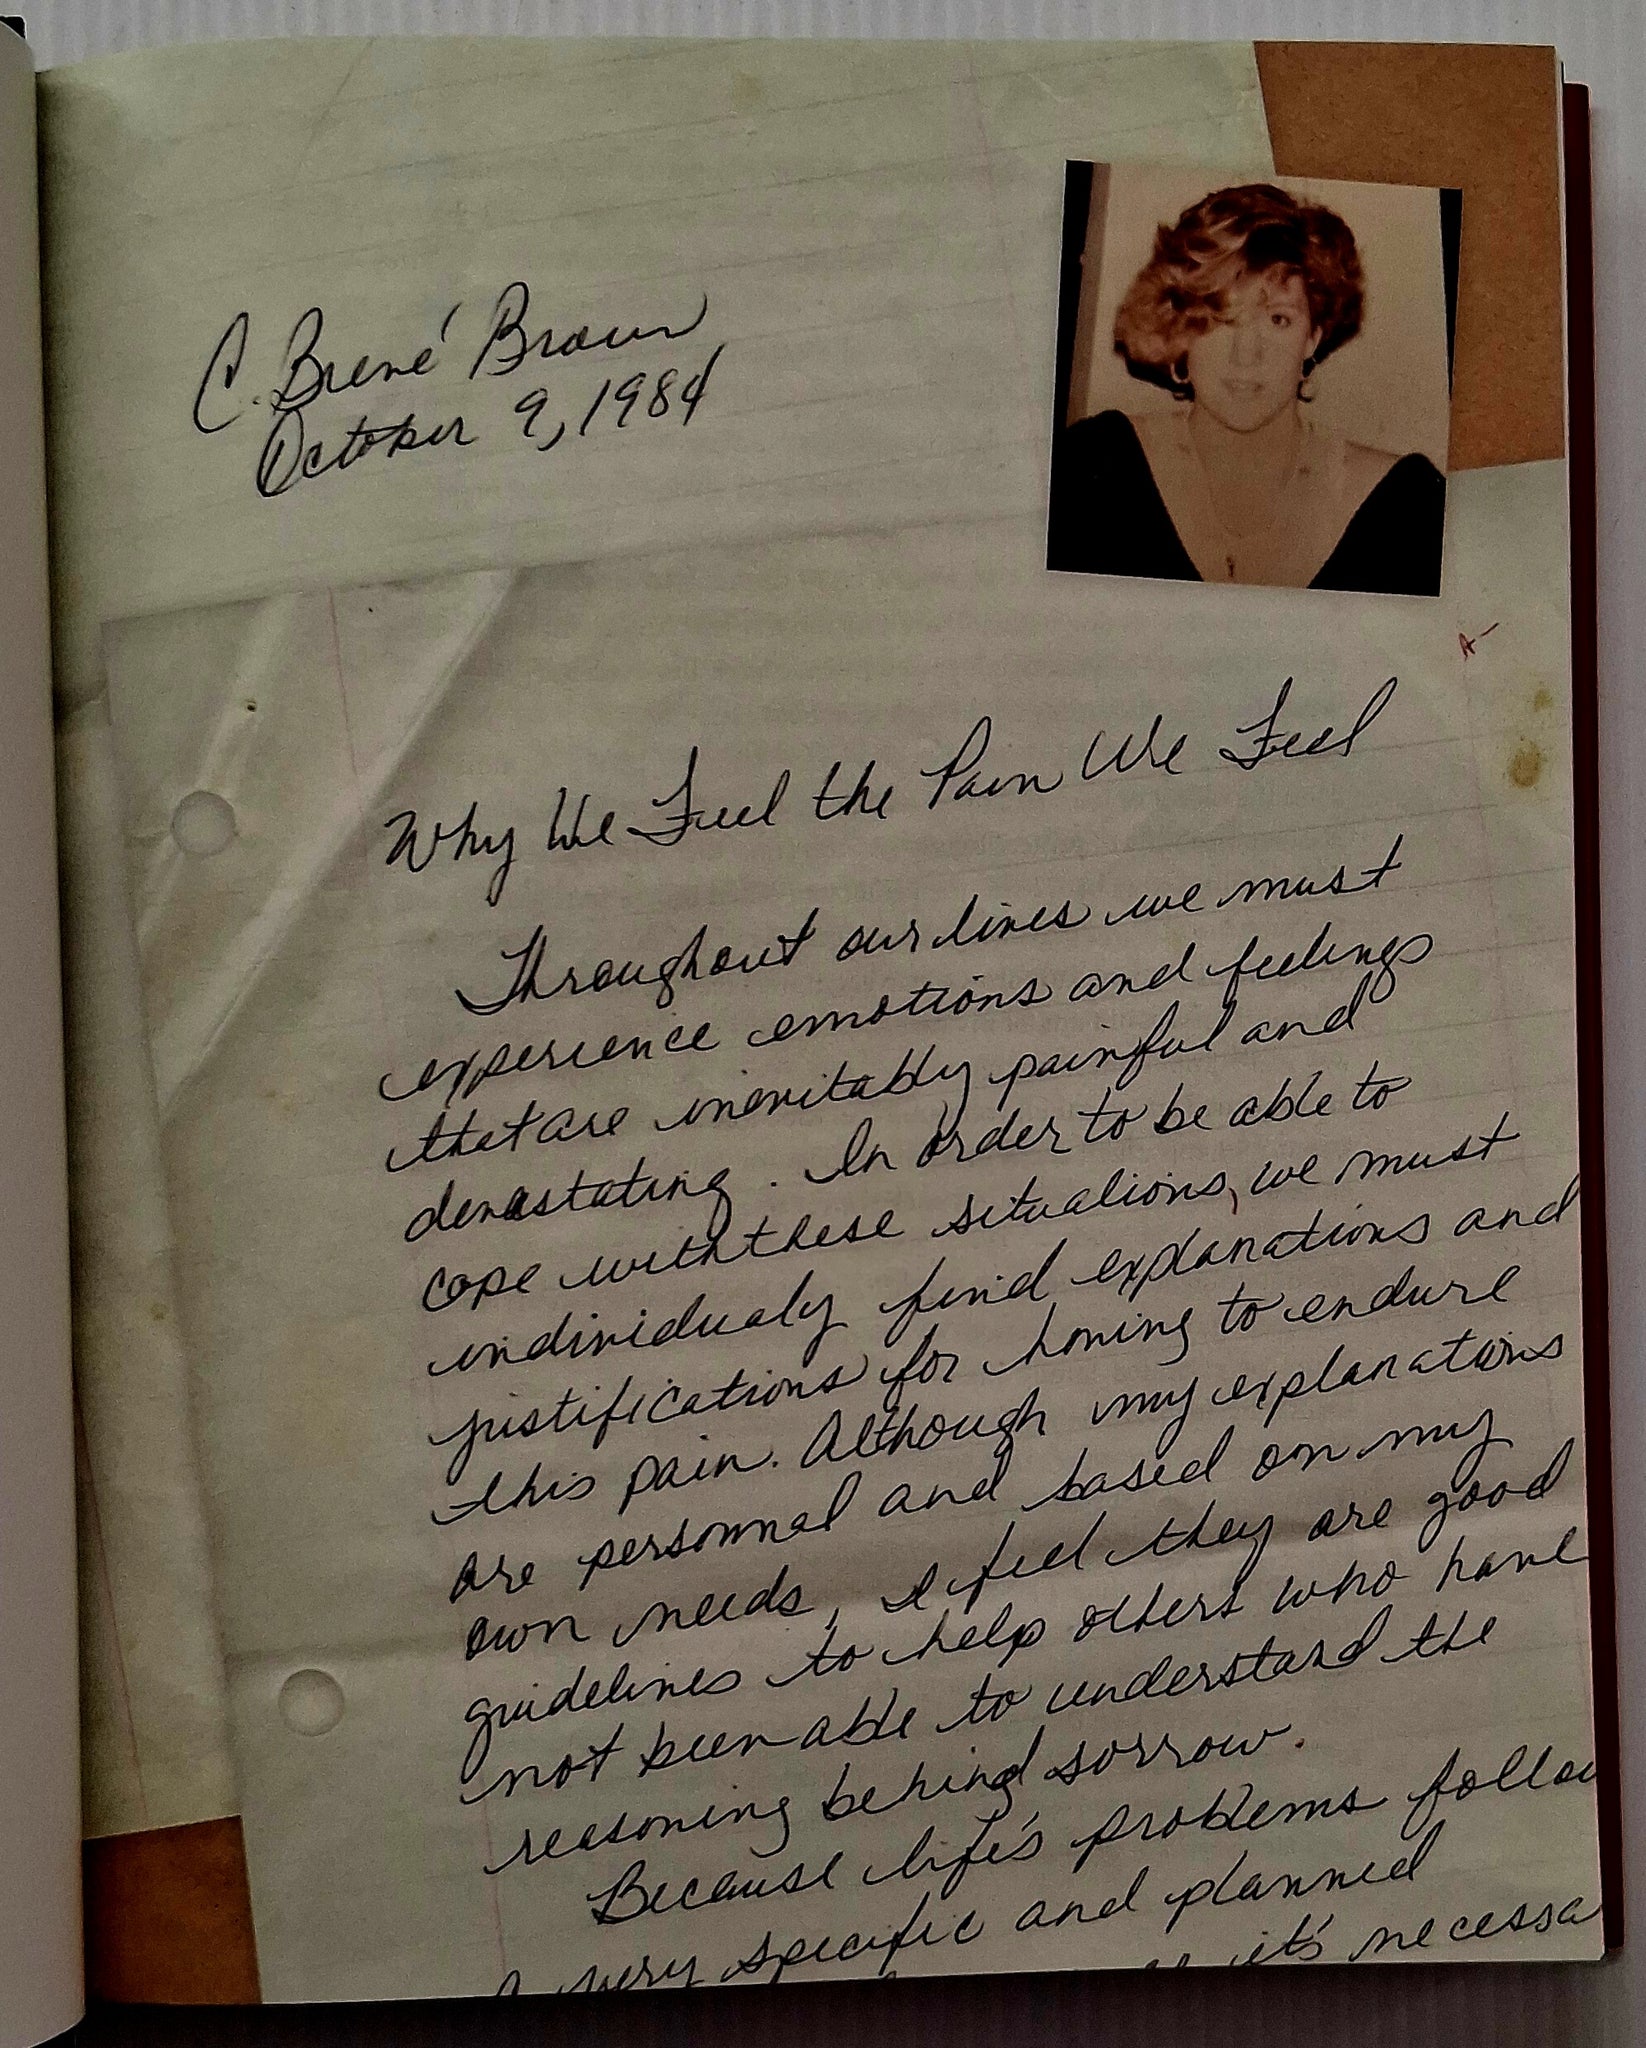 C. Brené Brown
October 9, 1984
A-
Why We Feel the Pain We Feel
Throughout our lives we must
experience emotions and feelings
that are inevitably painful and
devastating. In order to be able to
cope with these situations, we must
individualy find explanations and
justifications for having to endure
this pain. Although my explanations
are personnal and based on my
own needs, I feel they are good
guidelines to help others who have
not been able to understand the
reasoning behind sorrow.
Because life's problems follow
very specific and planned
it's necessa